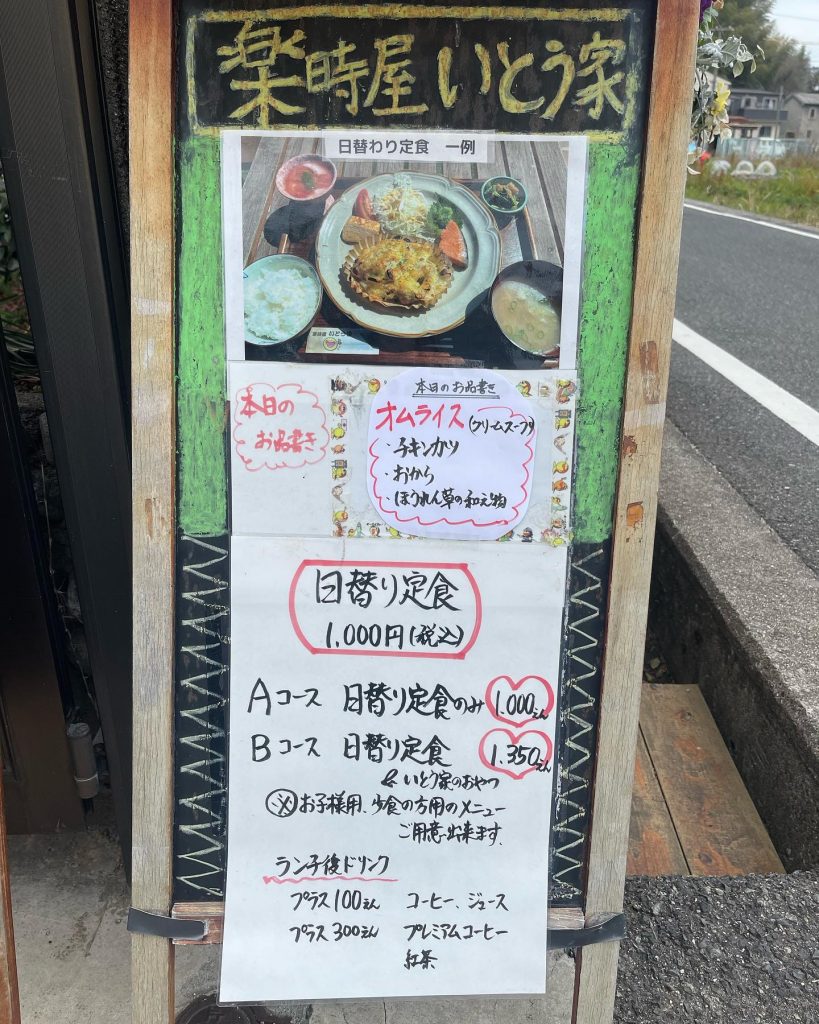 楽時屋 いとう家
日替わり定食 一例
本日の
お品書き
本日のお品書き
オムライス(クリームスープ)
・チキンカツ
・おから
・ほうれん草の和え物
日替り定食
1,000円(税込)
Aコース 日替り定食のみ 1.000えん
Bコース 日替り定食 1.350えん
& いとう家のおやつ
※お子様用、少食の方用のメニュー
ご用意出来ます。
ランチ後ドリンク
プラス100えん コーヒー、ジュース
プラス300えん プレミアムコーヒー
紅茶